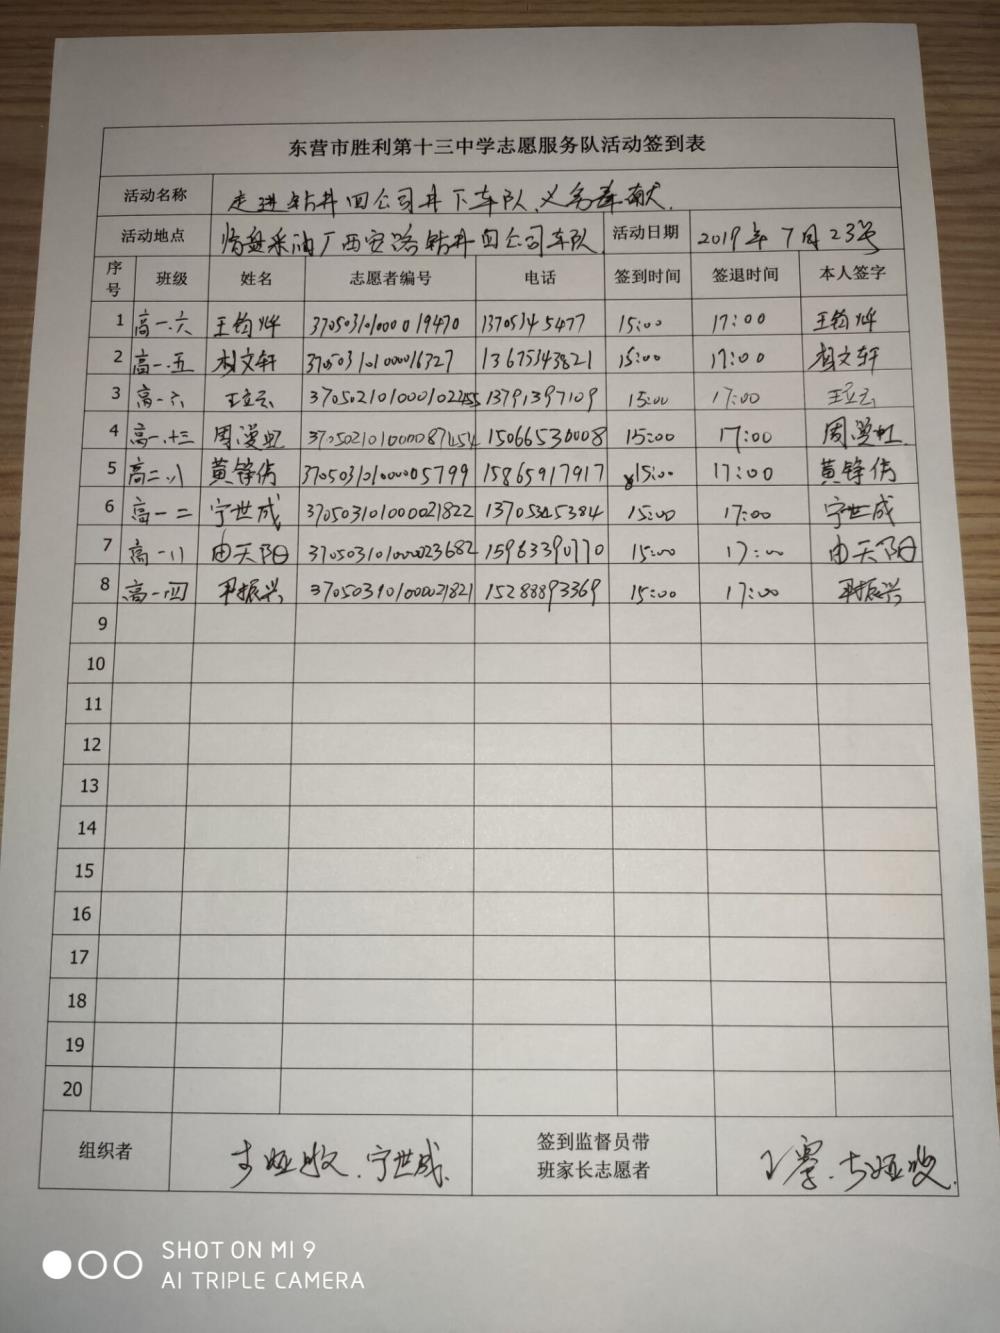 东营市胜利第十三中学志愿服务队活动签到表
活动名称 走进钻井四公司井下车队义务奉献.
活动地点 临盘采油厂西安路钻井四公司车队 活动日期 2019年7月23号
序号 班级 姓名 志愿者编号 电话 签到时间 签退时间 本人签字
1 高一.六 王钧烨 370503101000019470 1370534 5477 15:00 17:00 王钧烨
2 高一.五 文轩 370503101000016327 13675343821 15:00 17:00 文轩
3 高一.六 王立云 13791397109 15:00 17:00 王立云
4 高一.十三 周漫虹 15066530008 15:00 17:00 周漫虹.
5 高二.八 黄铮倩 370503101000005799 15865917917 15:00 17:00 黄铮倩
6 高一 二 宁世成 370503101000021822 13705345384 15:00 17:00 宁世成
7 高一 八 由天阳 370503101000023682 15963390770 15:00 17:00 由天阳
8 高一.四 尹振兴 370503101000021821 15288893369 15:00 17:00 尹振兴
9
10
11
12
13
14
15
16
17
18
19
20
组织者 宁世成. 签到监督员带
班家长志愿者
SHOT ON MI 9
AI TRIPLE CAMERA